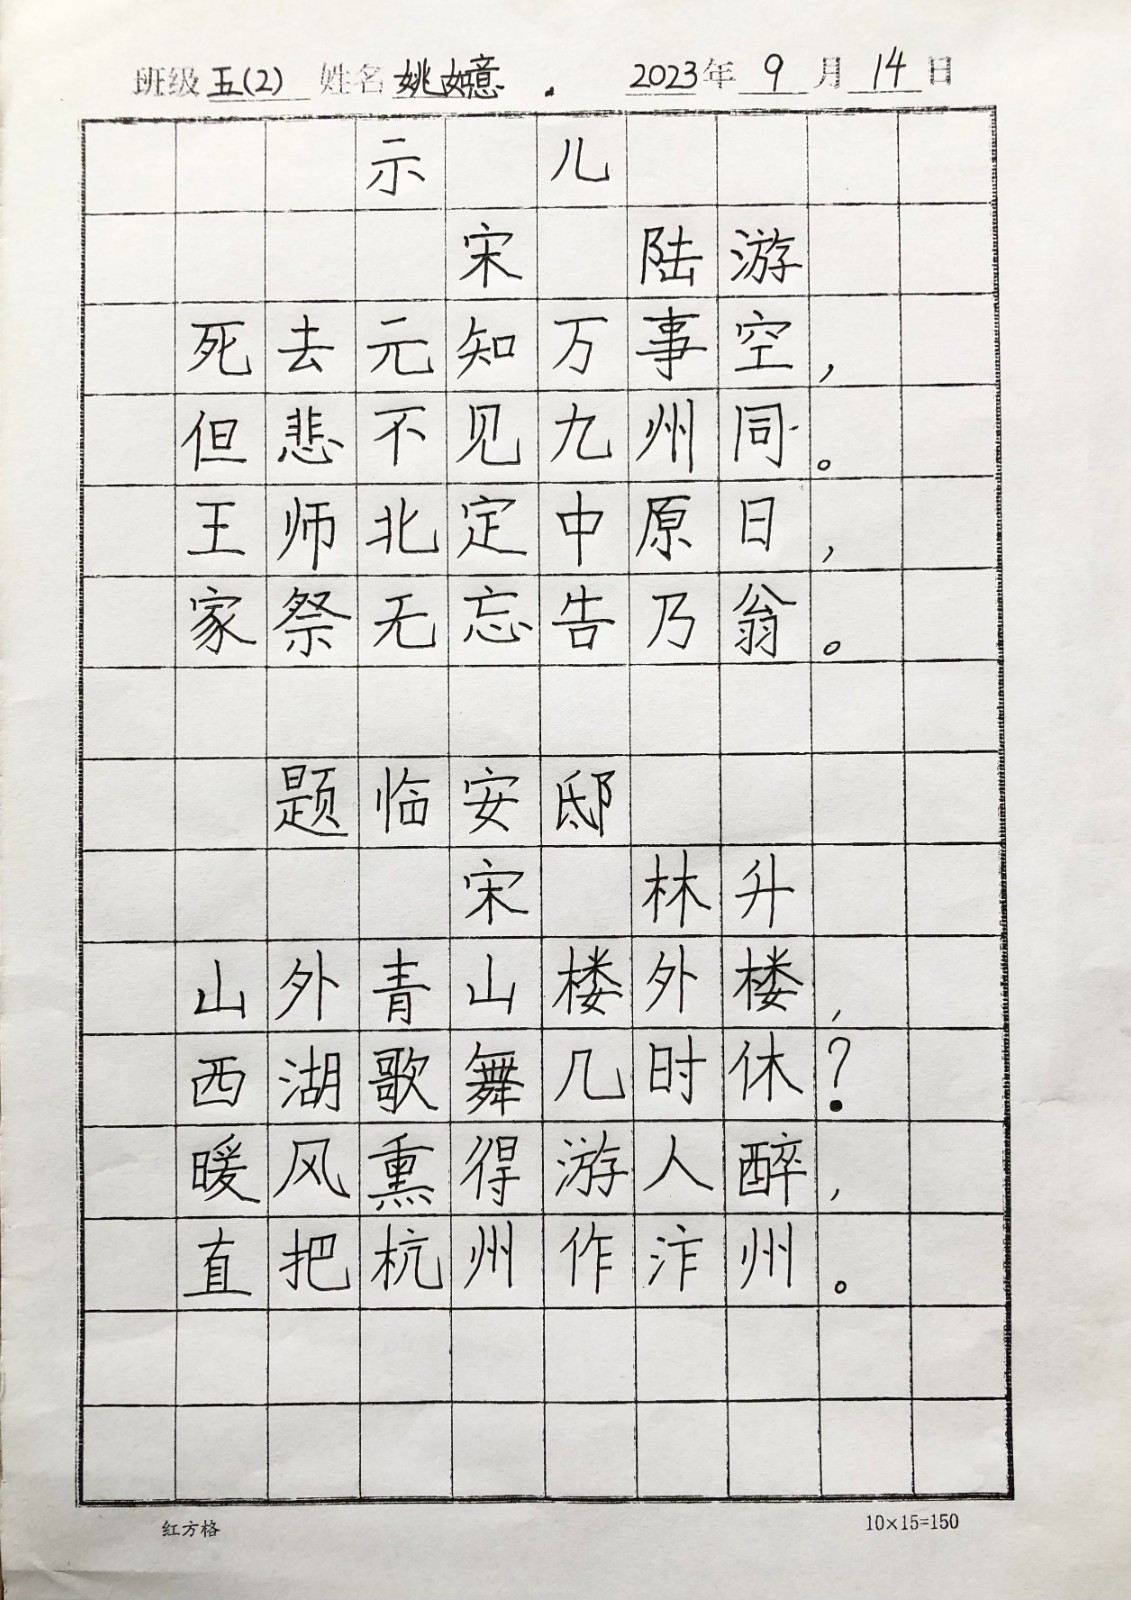 班级 五(2) 姓名 姚如意 . 2023年 9 月 14 日
示 儿
宋 陆游
死去元知万事空,
但悲不见九州同。
王师北定中原日,
家祭无忘告乃翁。
题临安邸
宋 林升
山外青山楼外楼,
西湖歌舞几时休?
暖风熏得游人醉,
直把杭州作汴州。
红方格 10×15=150